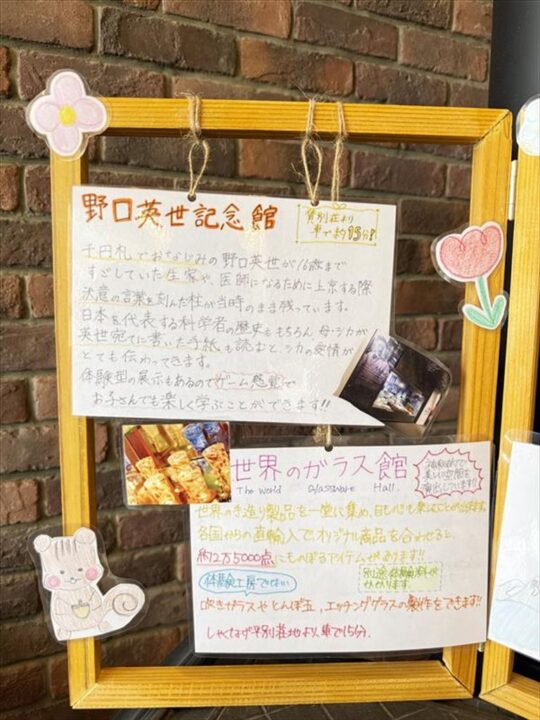 野口英世記念館
貸別荘より
車で約15分!
千円札でおなじみの野口英世が16歳まで
すごしていた生家や、医師になるために上京する際
決意の言葉を刻んだ柱が当時のまま残っています。
日本を代表する科学者の歴史ももちろん、母・シカが
英世宛てに書いた手紙も読むと、シカの愛情が
とても伝わってきます。
体験型の展示もあるのでゲーム感覚で
お子さんでも楽しく学ぶことができます!!
世界のガラス館
The World Glassware Hall.
美しい空間を
演出しています!
世界の手造り製品を一堂に集め、目も心も楽しむことが出来ます。
各国からの直輸入でオリジナル商品を合わせると、
約2万5000点にものぼるアイテムがあります!!
体験工房では
別途体験料が
かかります
吹きガラスやとんぼ玉、エッチンググラスの製作をできます!!
しゃくなげ平別荘地より、車で15分.